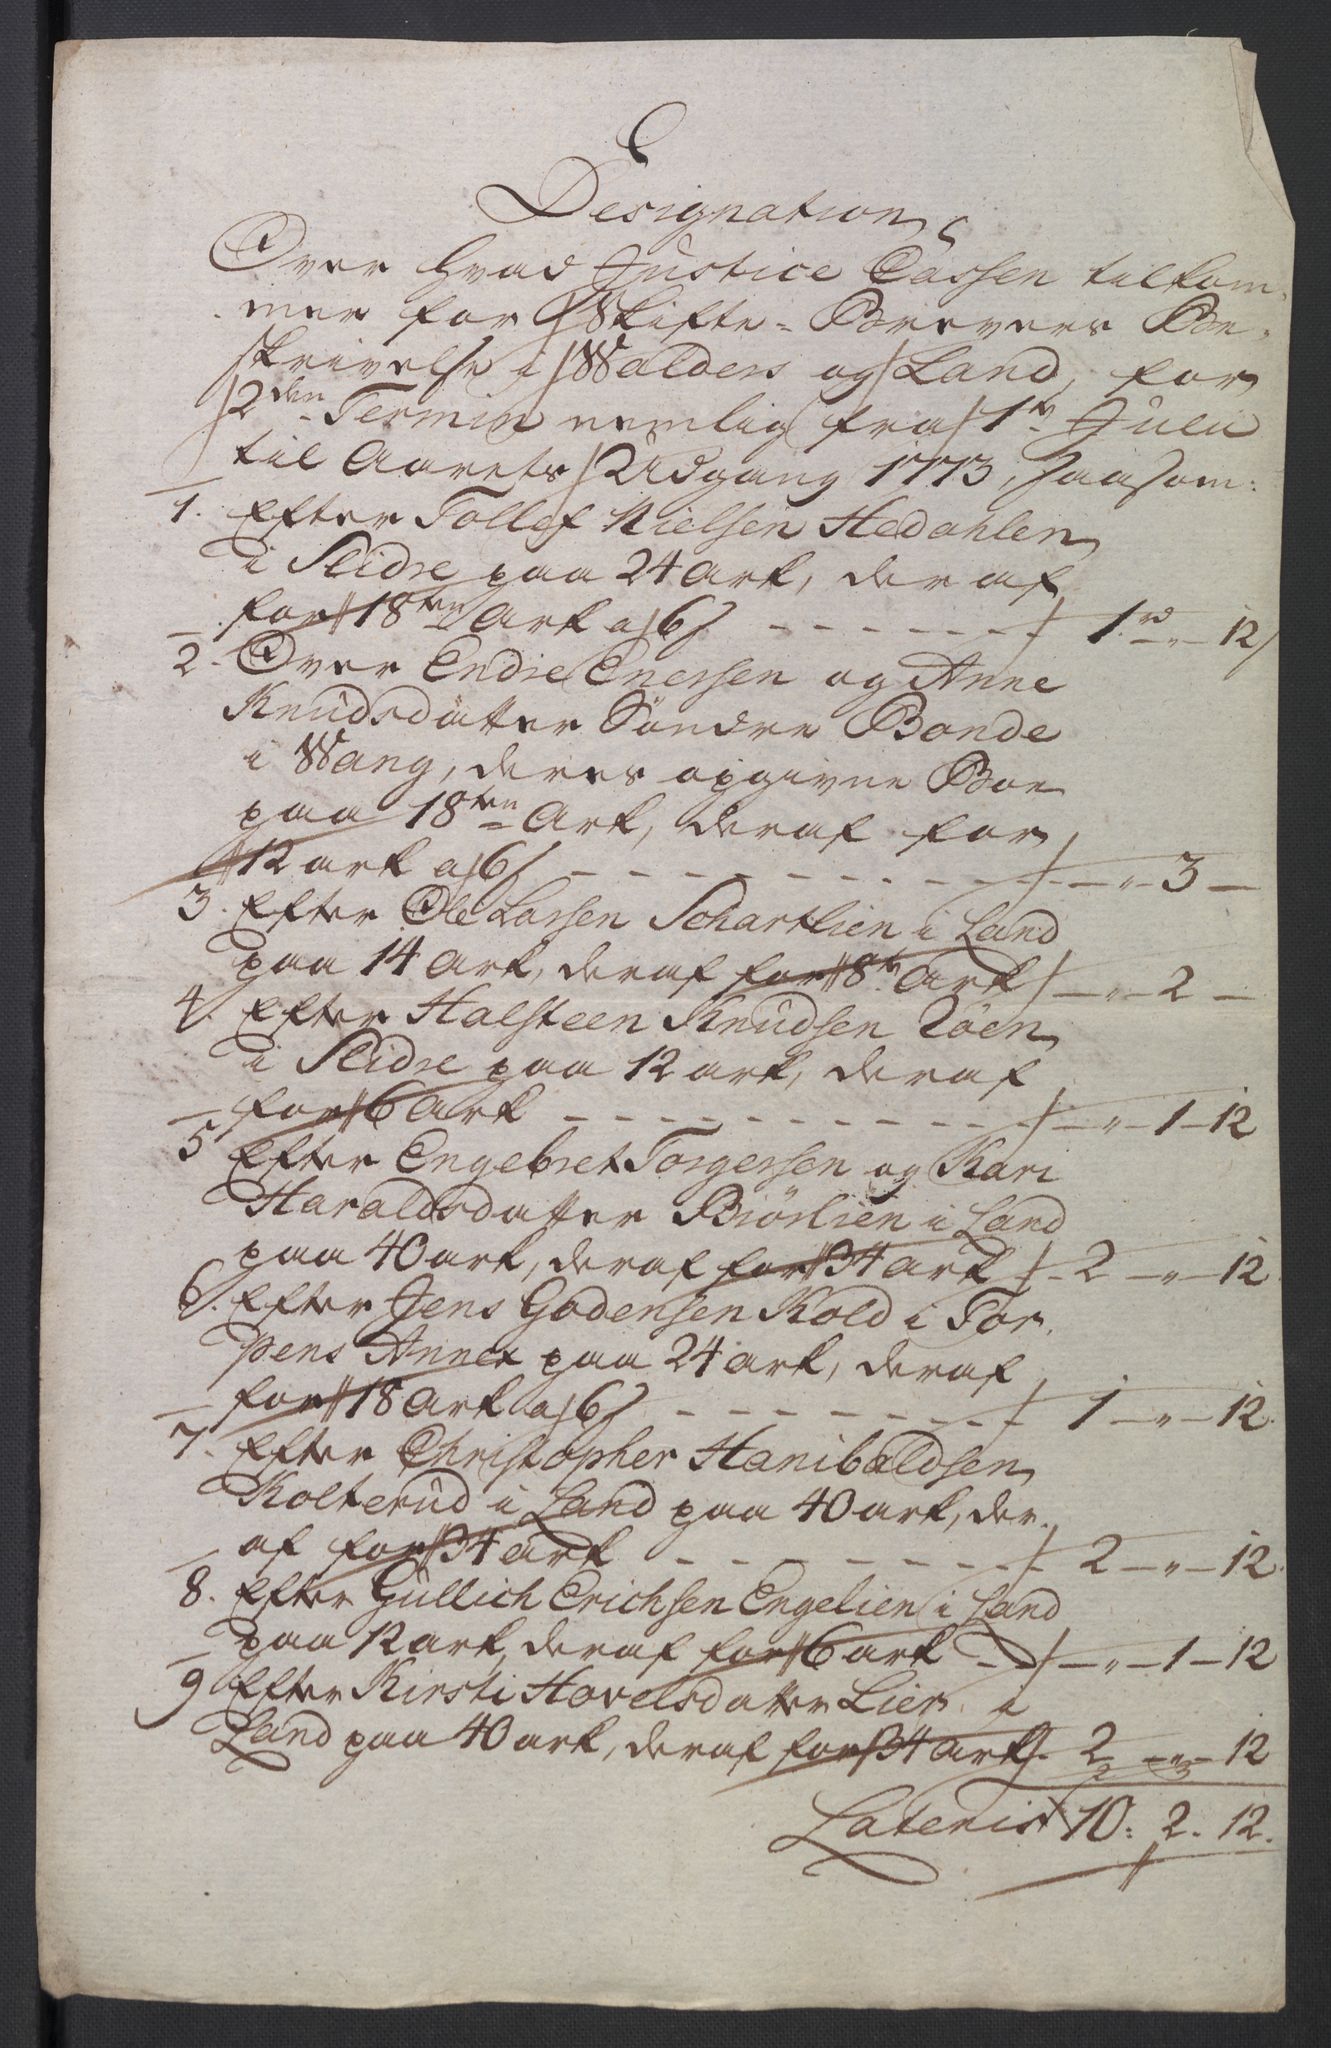 Designation
Over hvad Justice Cassen tilkom-
mer for Skifte-Brevers Be-
skrivelse i Walders og Land, for
2den Termin nemlig fra 1te Julii
til Aarets Udgang 1773, saasom:
1. Efter Tollef Nielsen Hedahlen
i Slidre paa 24 Ark, der af
for 18ten Ark a 6 s - - - - - - 1 rd " - 12 s
2. Over Endre Enersen og Anne
Knudsdatter Søndre Bonde
i Wang, deres opgivne Boe
paa 18ten Ark, deraf for
12 ark a 6 s - - - - - - - - - - - " - 3 -
3. Efter Ole Larsen Schartlien i Land
paa 14 Ark, deraf for 8te Ark - " - 2 -
4. Efter Halsteen Knudsen Røen
i Slidre paa 12 ark, deraf
for 6 Ark - - - - - - - - - - - " - 1 - 12
5 Efter Engebret Torgersen og Kari
Haraldsdatter Biørlien i Land
paa 40 ark, deraf for 34 ark - 2 - " - 12.
6. Efter Jens Godensen Kold i Tor-
pens Annex paa 24 ark, deraf
for 18 Ark a 6 s - - - - - - - - 1 - " - 12.
7. Efter Christopher Hanibaldsen
Kolterud i Land paa 40 ark, der-
af for 34 ark - - - - - - - - 2 - " - 12.
8. Efter Gullich Erichsen Engelien i Land
paa 12 ark, deraf for 6 ark - - - " - 1 - 12
9 Efter Kirsti Hovelsdatter Lier i
Land paa 40 ark, deraf for 34 ark. 2 - " - 12
Lateris 10: 2. 12.